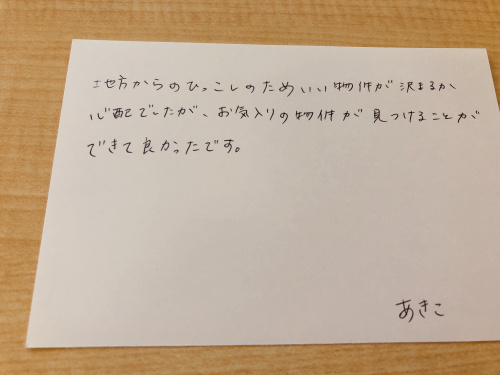 地方からのひっこしのためいい物件が決まるか
心配でしたが、お気入りの物件が見つけることが
できて良かったです。
あきこ